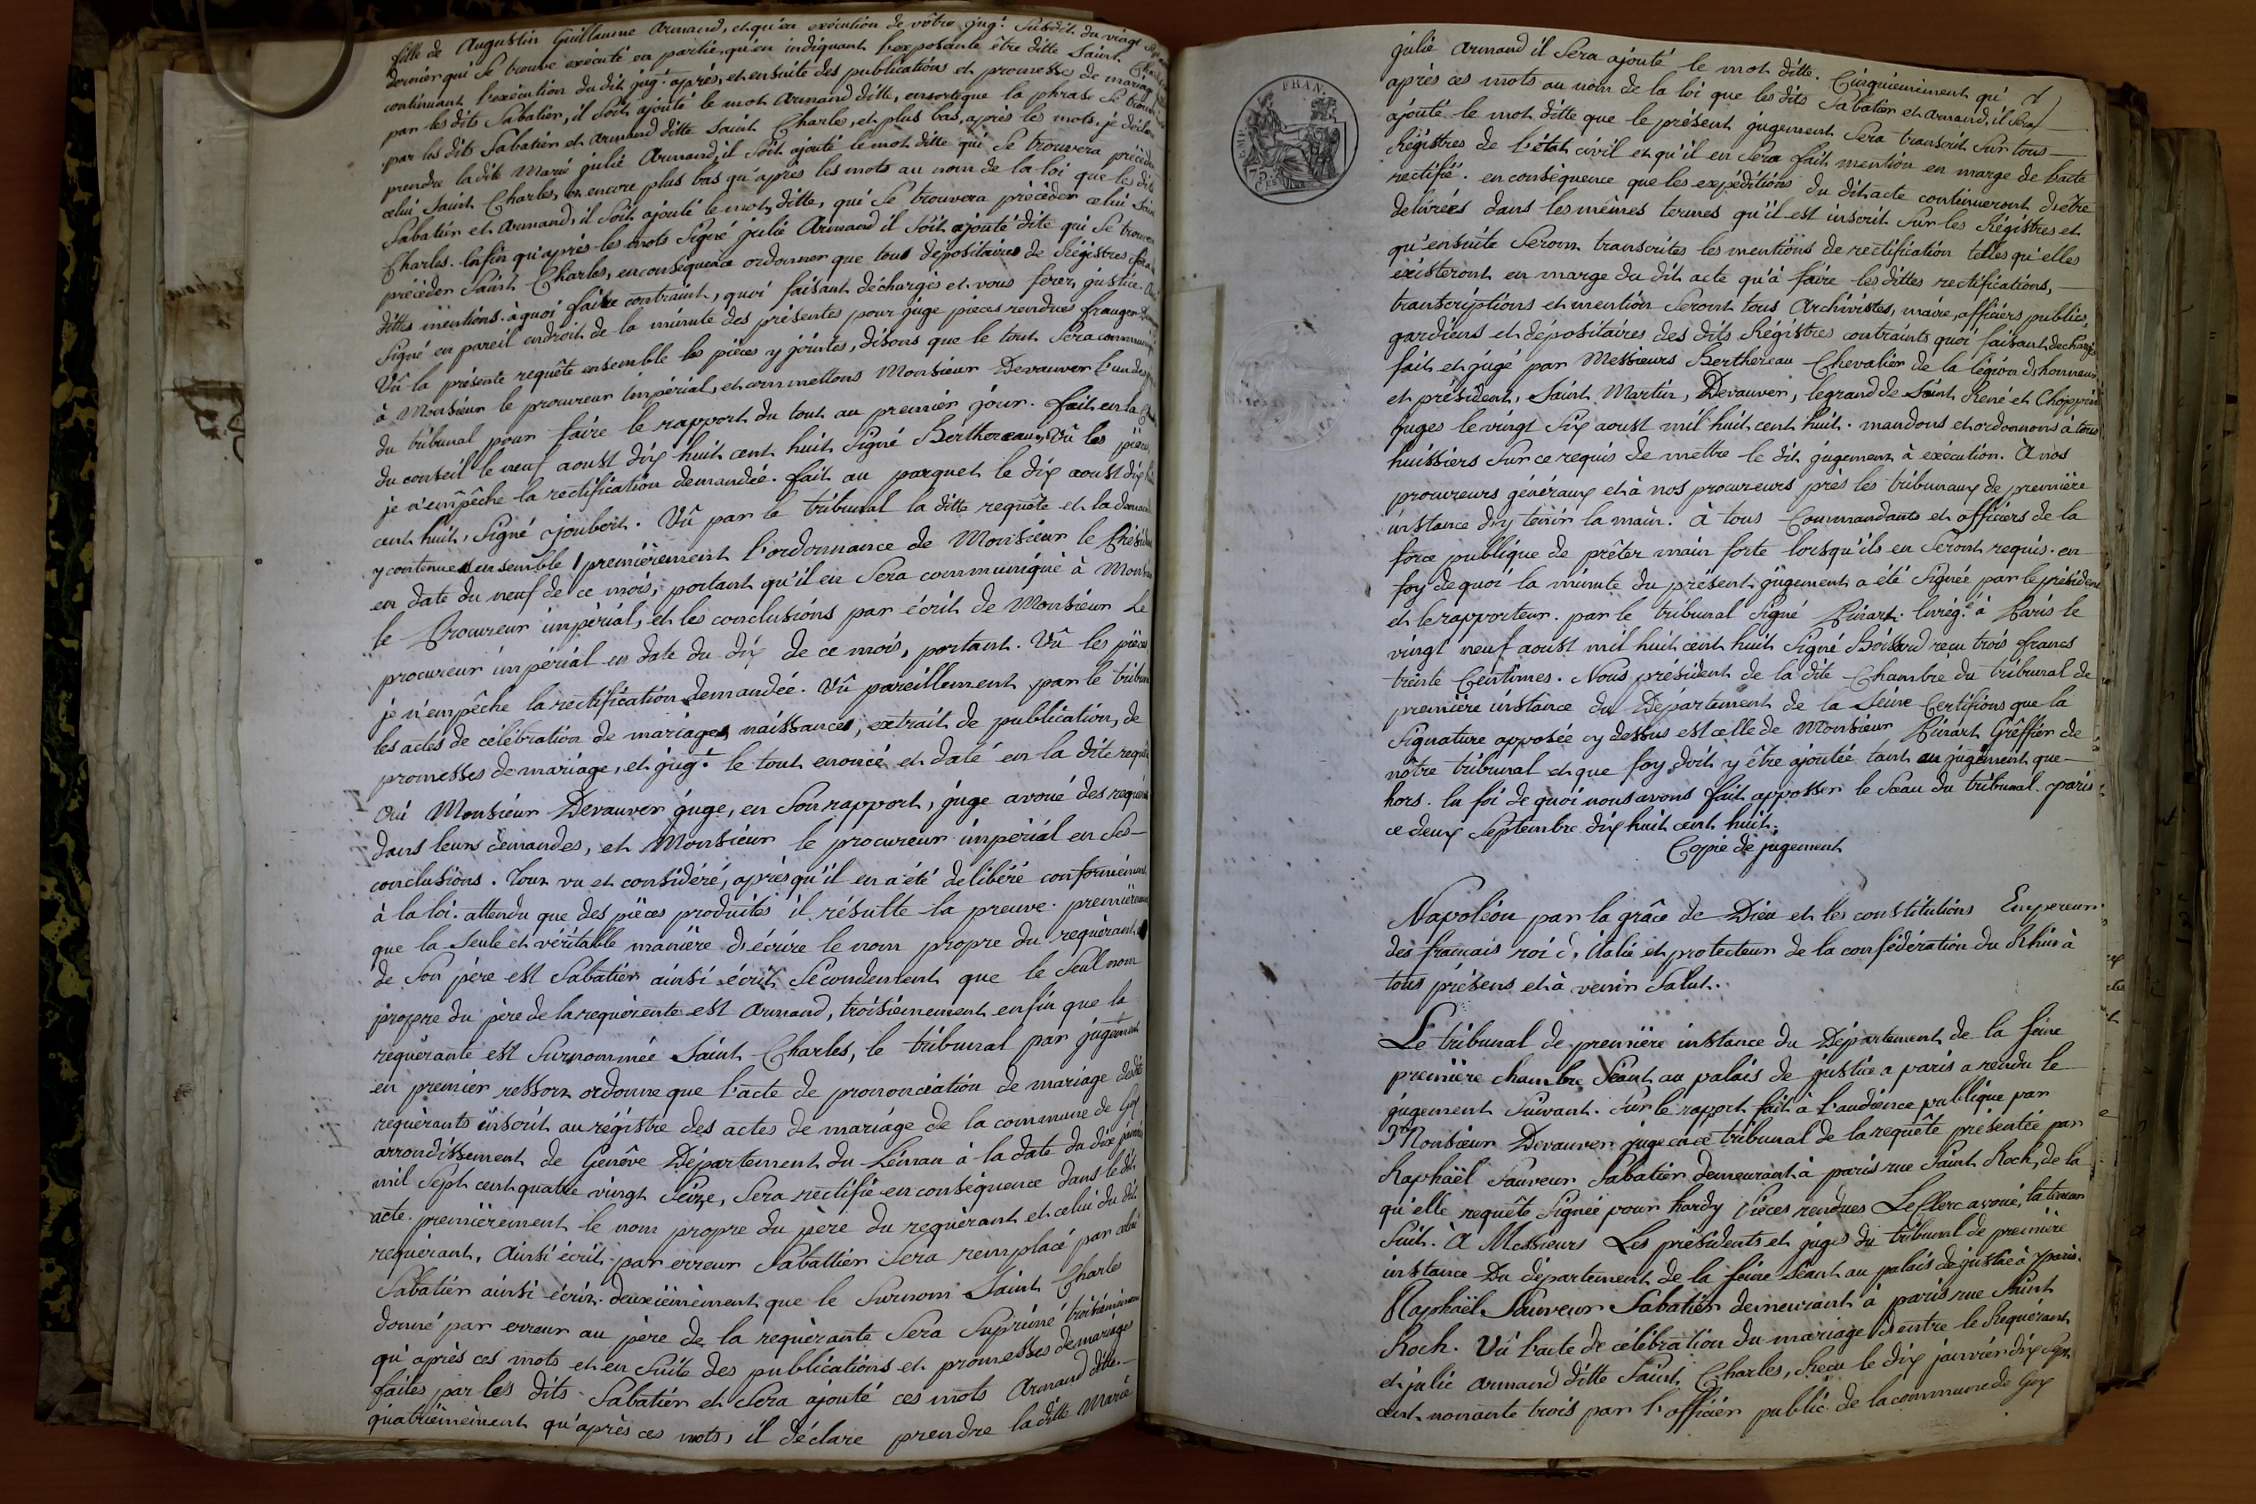 fille de Augustin Guillaume Armand, et qu'en exécution de vôtre jug.t susdit du vingt
dernier qui se trouve exécuté en partie, qu'en indiquant l'exposante être ditte Saint
continuant l'exécution du dit jug.t après, et ensuite des publications et promesses de mariage
par les dits Sabatier, il soit ajouté le mot Armand ditte, ensorte que la phrase se trouve
par les dits Sabatier et Armand ditte Saint Charles, et plus bas, après les mots, je déclare
prendre la dite Marie julie Armand, il soit ajouté le mot ditte qui se trouvera précéder
celui Saint Charles, et encore plus bas qu'après les mots au nom de la loi que les dits
Sabatier et Armand, il soit ajouté le mot ditte, qui se trouvera précéder celui Saint
Charles. Enfin qu'après les mots signé julie Armand il soit ajouté dite qui se trouvera
précéder Saint Charles, en conséquence ordonner que tous dépositaires de Régistres
dittes mentions. à quoi faire contraint, quoi faisant déchargés et vous ferez justice.
Signé en pareil endroit de la minute des présentes pour juge pièces rendues
Vû la présente requête ensemble les pièces y jointes, disons que le tout sera communiqué
à Monsieur le procureur impérial, et commettons Monsieur Devauver l'un des
du tribunal pour faire le rapport du tout au premier jour. fait en la
du conseil le neuf aoust dix huit cent huit signé Berthereau, Vû les pièces
je n'empêche la rectification demandée. fait au parquet le dix aoust dix
cent huit, signé joubert. Vû par le tribunal la ditte requête et la demande
y contenue ensemble 1 premièrement l'ordonnance de Monsieur le Président
en date du neuf de ce mois, portant qu'il en sera communiqué à Monsieur
le Procureur impérial, et les conclusions par écrit de Monsieur le
procureur impérial en date du dix de ce mois, portant. Vû les pièces
je n'empêche la rectification demandée. Vû pareillement par le tribunal
les actes de célébration de mariages naissances, extrait de publication, de
promesses de mariage, et jug.t le tout énoncé et daté en la dite requête
Oui Monsieur Devauver juge, en son rapport, juge avoué des requérants
dans leurs demandes, et Monsieur le procureur impérial en ses
conclusions. Tout vu et considéré, après qu'il en a été delibéré conformément
à la loi. attendu que des pièces produites il résulte la preuve. premièrement
que la seule et véritable manière d'écrire le nom propre du requérant et
de son père est Sabatier ainsi écrit, sécondement que le seul nom
propre du père de la requérente est Armand, troisiemement enfin que la
requérante est surnommée Saint Charles, le tribunal par jugement
en premier ressort ordonne que l'acte de prononciation de mariage desdits
requérants inscrit au régistre des actes de mariage de la commune de Gex
arrondissement de Genêve Département du Léman à la date du dix janvier
mil sept cent quatre vingt seize, sera rectifié en conséquence dans le dit
acte. premièrement le nom propre du père du requérant et celui du dit
requérant, ainsi écrit par erreur Sabattier sera remplacé par celui
Sabatier ainsi écrit. deuxiemement que le surnom Saint Charles
donné par erreur au père de la requérante sera supprimé troisiemement
qu'après ces mots et en suite des publications et promesses de mariages
faites par les dits Sabatier et sera ajouté ces mots Armand ditte.
quatriemement qu'après ces mots, il déclare prendre la ditte Marie
julie Armand il sera ajouté le mot ditte. Cinquiemement qu'
après ces mots au nom de la loi que les dits Sabatier et Armand, il sera
ajouté le mot ditte que le présent jugement sera transcrit sur tous
Régistres de l'état civil et qu'il en sera fait mention en marge de l'acte
rectifié. en conséquence que les expéditions du dit acte continueront d'être
delivrées dans les mêmes termes qu'il est inscrit sur les Régistres et
qu'ensuite seront transcrites les mentions de rectification telles qu'elles
éxisteront en marge du dit acte qu'à faire les dittes rectifications,
transcriptions et mention seront tous Archivistes, maire, officiers publics,
gardiens et dépositaires des dits Régistres contraints quoi faisant déchargés
fait et jugé par Messieurs Berthereau Chevalier de la légion d'honneur
et président, Saint Martin, Devauver, legrand de Saint René et Choppin
juges le vingt six aoust mil huit cent huit. mandons et ordonnons à tous
huissiers sur ce requis de mettre le dit jugement à exécution. À nos
procureurs généraux et à nos procureurs près les tribunaux de première
instance d'y tenir la main. À tous Commandants et officiers de la
force publique de prêter main forte lorsqu'ils en seront requis. en
foy de quoi la minute du présent jugement a été signée par le président
et le rapporteur. par le tribunal signé Pinart. Enrég.é à Paris le
vingt neuf aoust mil huit cent huit signé Boissard reçu trois francs
trente Centimes. Nous président de la dite Chambre du tribunal de
première instance du Département de la Seine Certifions que la
signature apposée cy dessus est celle de Monsieur Pinart Gréffier de
nôtre tribunal et que foy doit y être ajoutée tant au jugement que
hors. En foi de quoi nous avons fait apposser le sceau du tribunal. paris
ce deux septembre dix huit cent huit.
Copie de jugement
Napoléon par la grâce de Dieu et les constitutions Empereur
des français roi d'italie et protecteur de la confédération du Rhin à
tous présens et à venir Salut.
Le tribunal de première instance du Département de la Seine
première chambre séant au palais de justice a paris a rendu le
jugement suivant. sur le rapport fait à l'audience publique par
Monsieur Devauver juge en ce tribunal de la requête présentée par
Raphaël Sauveur Sabatier demeurant à paris rue Saint Roch, de la
qu'elle requête signée pour hardy pièces rendues Leclerc avoué, la teneur
suit. À Messieurs Les présidents et juges du tribunal de première
instance Du département de la Seine séant au palais de justice à paris.
Raphaël Sauveur Sabatier demeurant à paris rue Saint
Roch. Vû l'acte de célébration du mariage d'entre le Requérant
et julie Armand ditte Saint Charles, Reçu le dix janvier dix sept
cent nonante trois par l'officier public de la commune de Gex